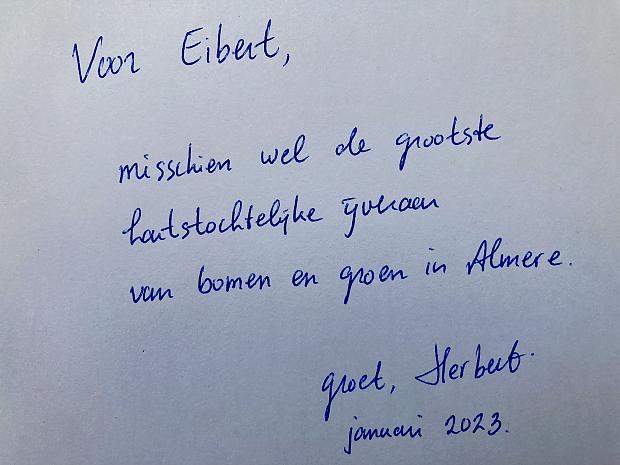 Voor Eibert,
misschien wel de grootste
hartstochtelijke ijveraar
van bomen en groen in Almere.
groet, Herbert.
januari 2023.